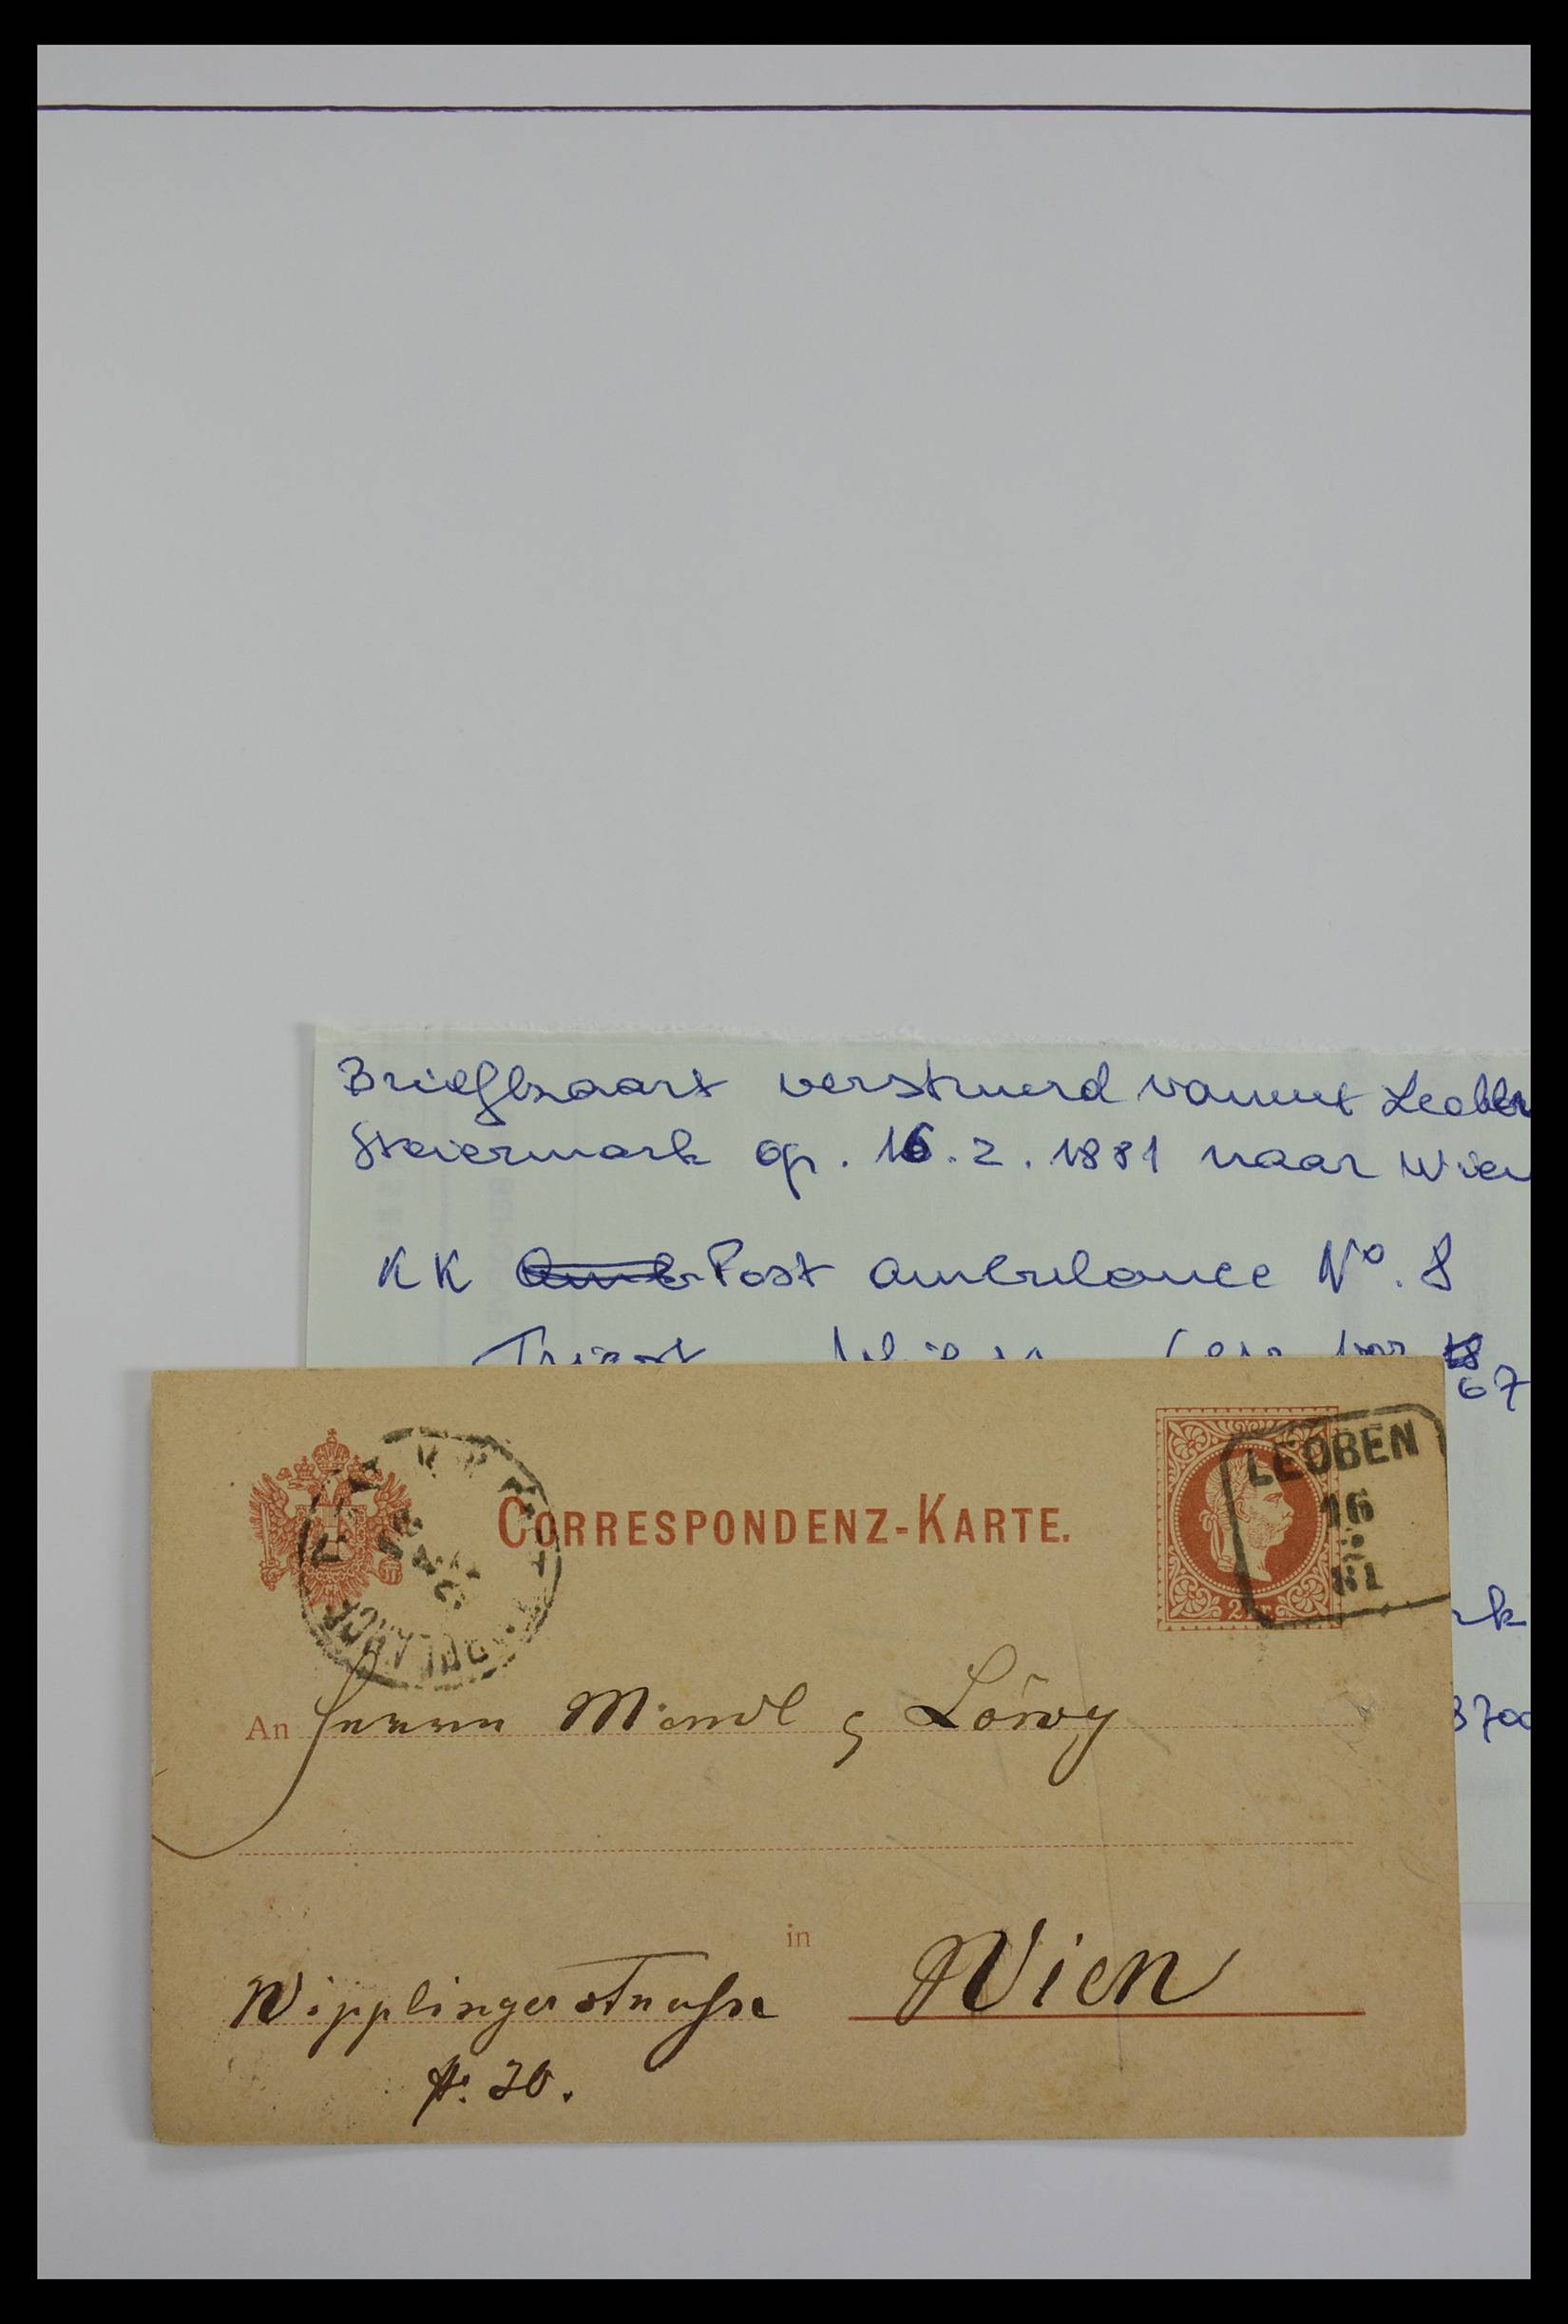 Briefkaart verstuurd vanuit Leoben
Steiermark op. 16.2.1881 naar Wien
KK Post ambulance No. 8
Triest
67
CORRESPONDENZ-KARTE.
LEOBEN
16
81
2 kr
rk
An Herrn Mandl & Löwy
3700
in
Wipplingerstrasse Wien
No. 30.